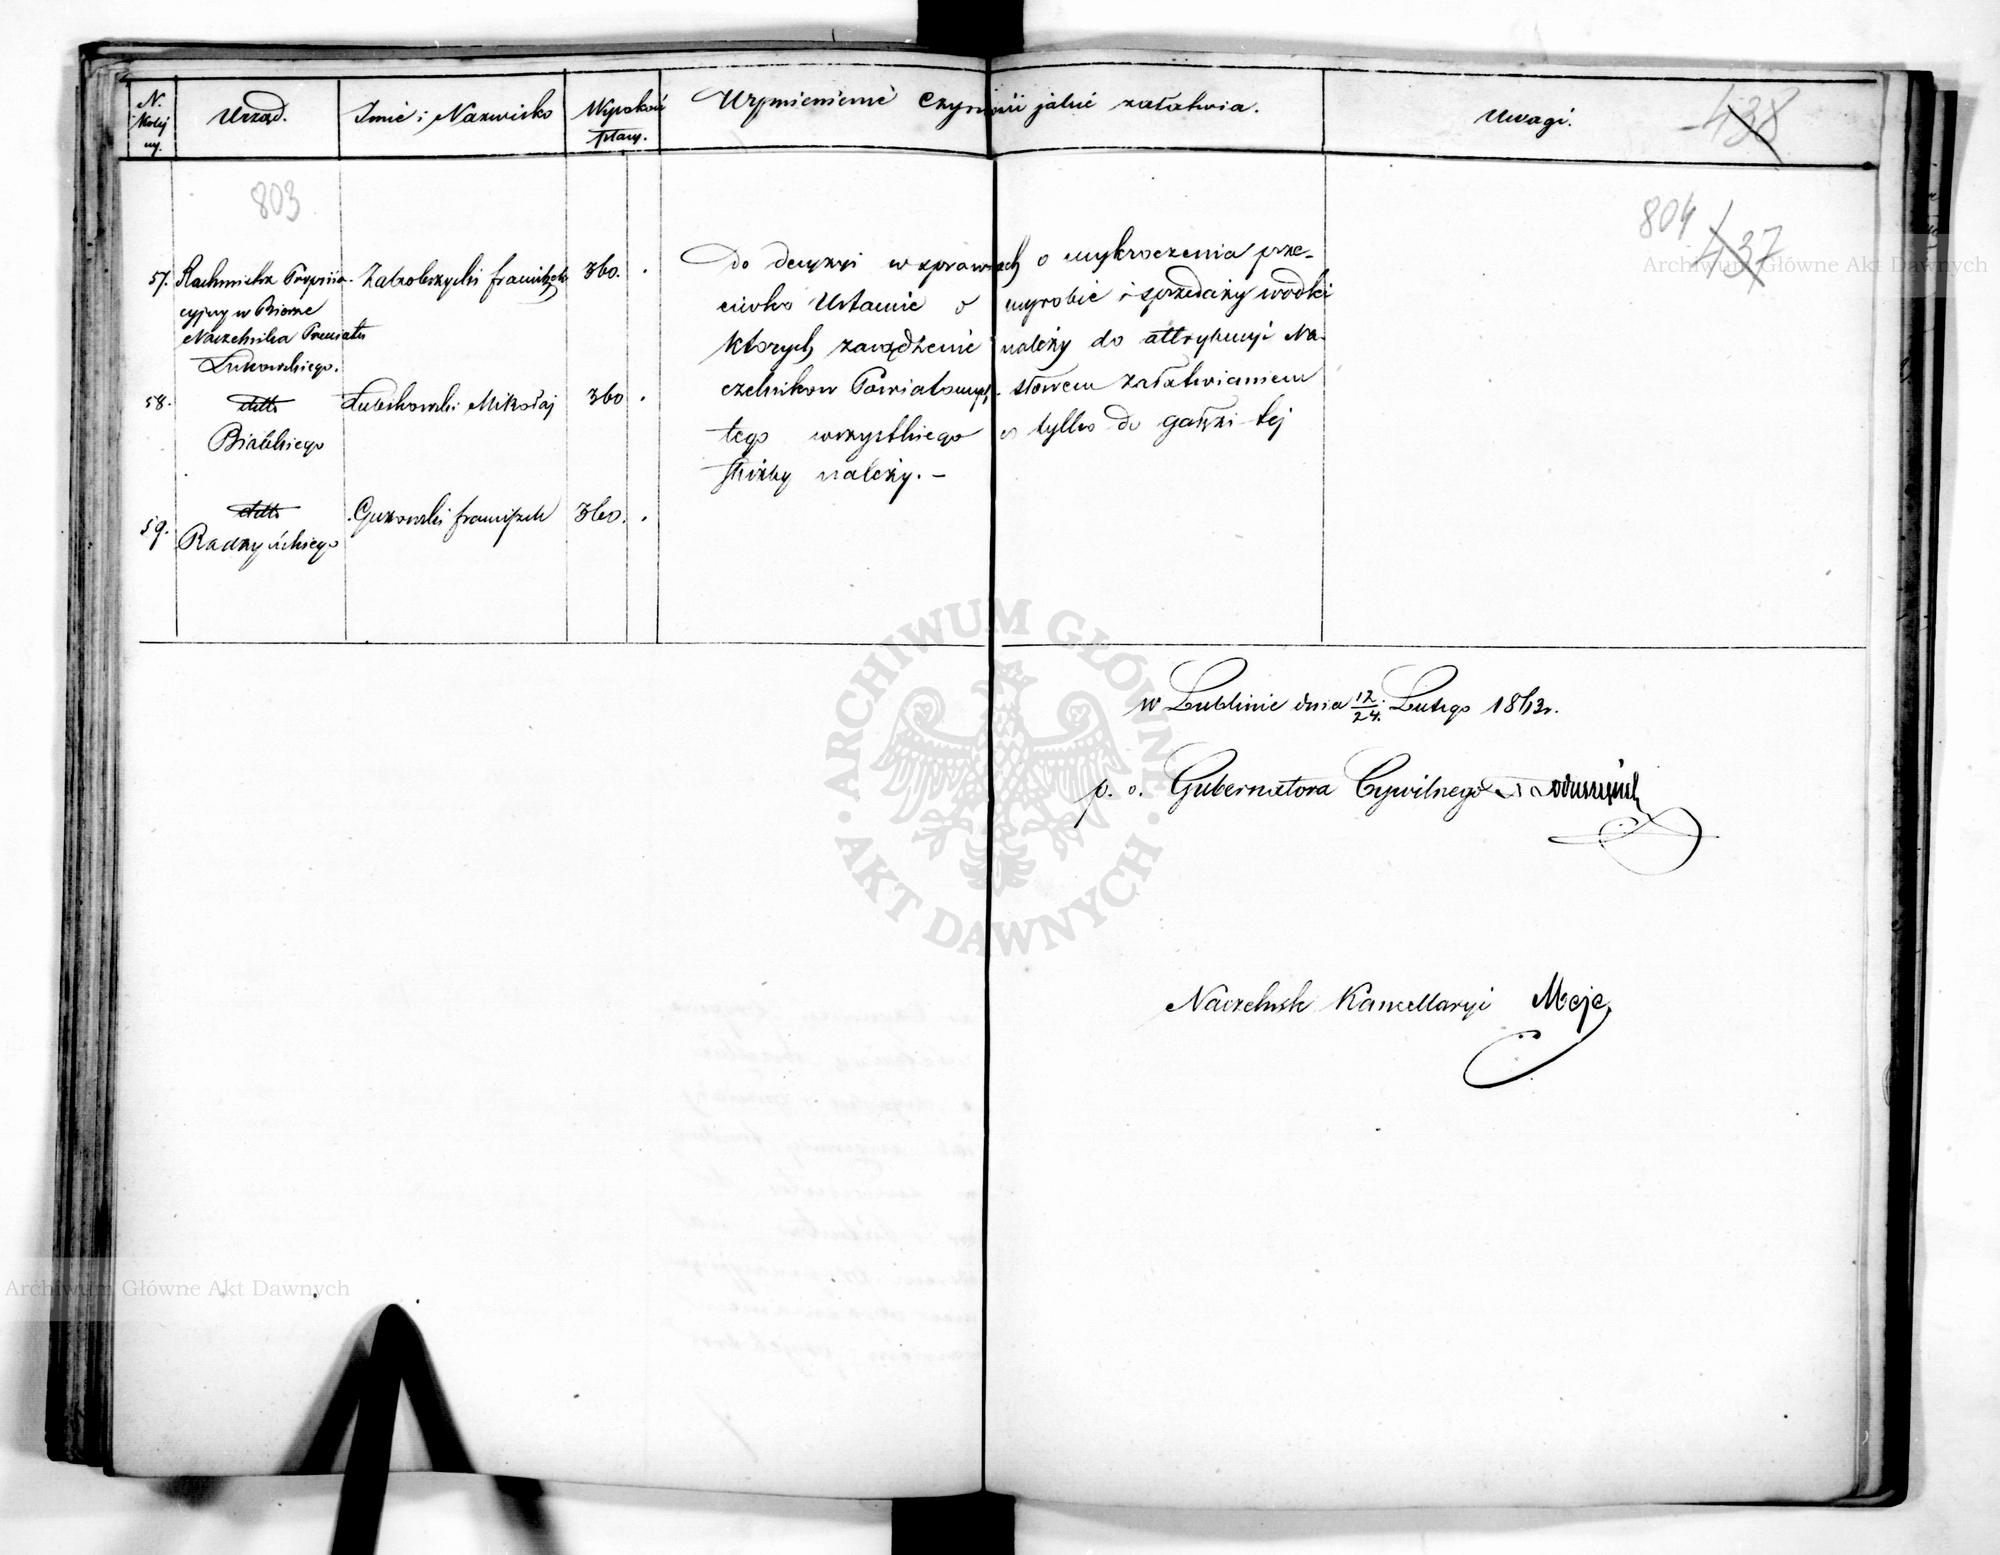 N. Kolej ny.
Urząd.
Imie i Nazwisko
Wysokość płacy.
Wymienienie Czynności jakie załatwia.
Uwagi.
438
803
804
437
57. Rachmistrz Propina-
cyjny w Biorze
Naczelnika Powiatu
Łukowskiego.
Franciszek
360.
58. ditto
Bialskiego
Mikołaj
360.
59. ditto
Radzyńskiego
Guzowski Franciszek
360.
Do decyzyi w sprawach o wykroczenia prze-
ciwko Ustawie o wyrobie i sprzedaży wodki
których zarządzenie należy do attrybucyi Na-
czelnikow Powiatowych. słowem załatwianiem
tego wszystkiego co tylko do gałęzi tej
służby należy. –
w Lublinie dnia 12/24. Lutego
p. o. Gubernatora Cywilnego
Naczelnik Kancellaryi
ARCHIWUM GŁÓWNE
AKT DAWNYCH
Archiwum Główne Akt Dawnych
Archiwum Główne Akt Dawnych